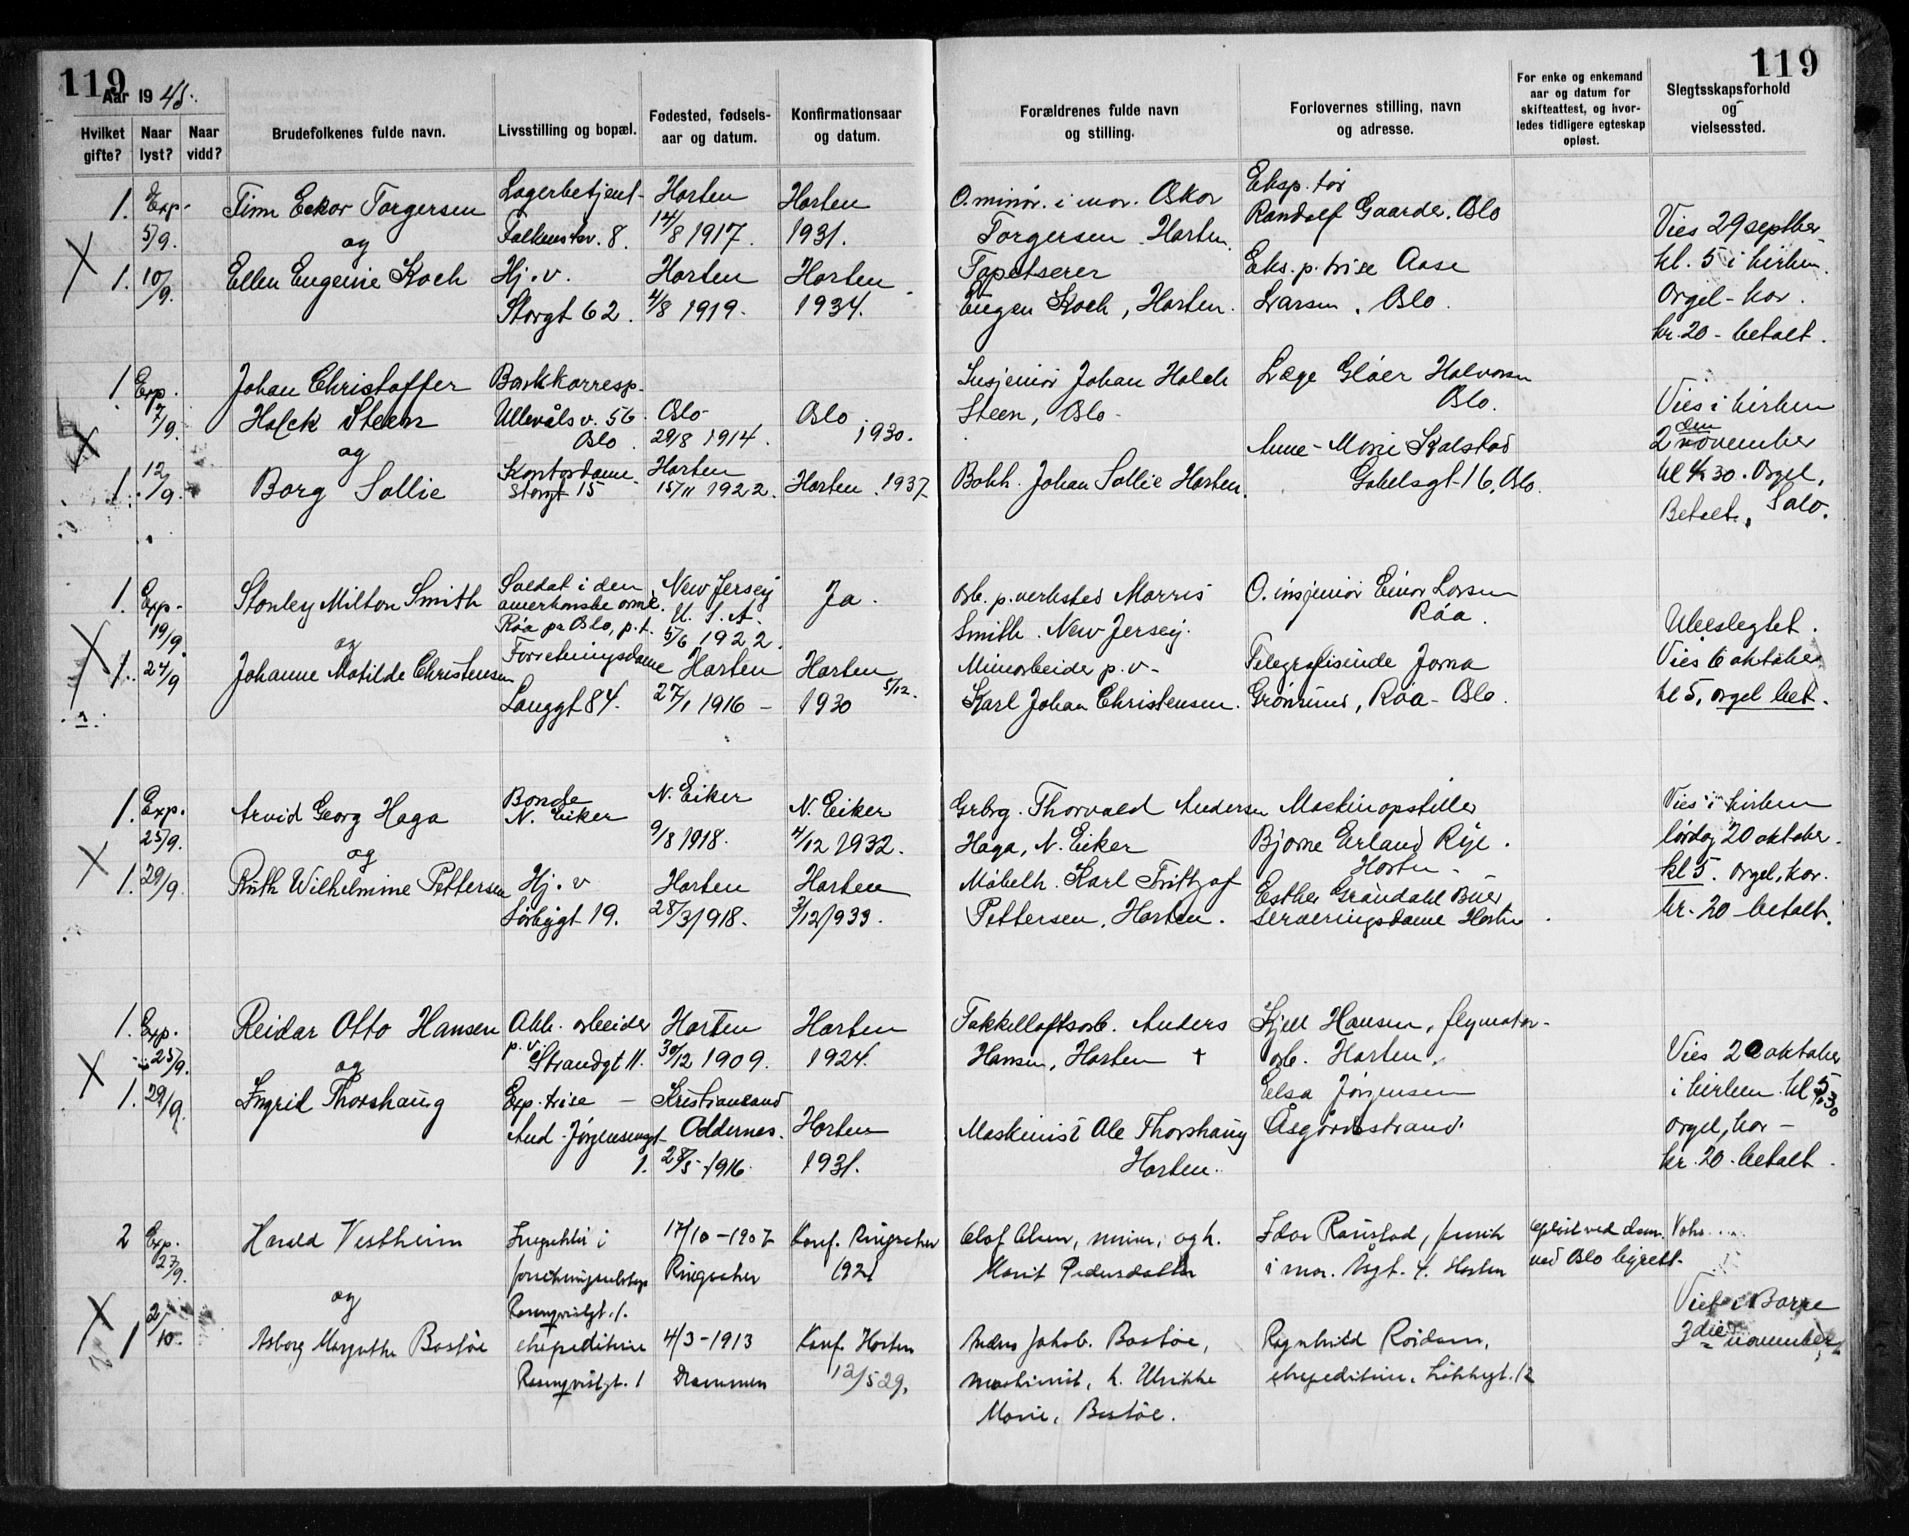 119
Aar 1945.
Hvilket gifte?
Naar lyst?
Naar vidd?
Brudefolkenes fulde navn.
Livsstilling og bopæl.
Fødested, fødsels-
aar og datum.
Konfirmationsaar
og datum.
119
Forældrenes fulde navn
og stilling.
Forlovernes stilling, navn
og adresse.
For enke og enkemand
aar og datum for
skifteattest, og hvor-
ledes tidligere egteskap
opløst.
Slegtsskapsforhold
og
vielsessted.
1. Exp. 5/9.
Torgersen
og
Lagerbetjent
8.
Horten
14/8 1917.
Horten
1931.
O. minør. i mar. Oskar
Torgersen Horten.
Randolf Gaarder. Oslo
1. 10/9.
Ellen Eugenie Koch
Hj. v.
Storgt 62.
Horten
4/8 1919.
Horten
1934.
Tapetserer
Eugen Koch, Horten.
Eksp.trise Aase
Larsen. Oslo.
Vies 29 septber
kl. 5 i kirken.
Orgel-kor.
kr. 20 - betalt.
1 Exp. 7/9.
Johan Christoffer
Holck Steen
og
Bankkorresp.
Ullevålsv. 56
Oslo
Oslo
29/8 1914.
Oslo
1930.
Insjeniør Johan Holck
Steen, Oslo
Læge Gløer Halvorsen
Oslo.
1. 12/9.
Borg Sollie
Kontordame
Storgt 15
Horten
15/11 1922.
Horten. 1937
Bokh. Johan Sollie Horten.
Anne-Marie Kalstad
Gabelsgt 16, Oslo.
Vies i kirken
den
2 november
kl 4.30. Orgel,
Betalt, Salv.
1. Exp. 19/9.
Stanley Milton Smith
og
Soldat i den
amerikanske armé.
Røa pr Oslo, p.t.
New Jersey
U.S.A.
5/6 1922.
Ja.
Arb. p. verksted Morris
Smith. New Jersey.
O. insjeniør Einar Larsen
Røa.
1. 24/9
Johanne Matilde Christensen
Forretningsdame
Langgt 84.
Horten
27/1 1916
Horten
1930 5/12.
Minarbeider p.v.
Karl Johan Christensen.
Telegrafistinde Jorna
Grønlund, Røa - Oslo.
Ubeslegtet.
Vies 6 oktober
kl 5, orgel bet.
1. Exp. 25/9.
Arvid Georg Haga
og
Bonde
N. Eiker
N. Eiker
9/8 1918.
N. Eiker
4/12 1932.
Grbrg. Thorvald Andersen
Haga, N. Eiker
Maskinopstiller
Bjarne Erland Rye.
Horten
1. 29/9.
Ruth Wilhelmine Pettersen
Hj. v
19.
Horten
28/3 1918.
Horten
3/12 1933.
Møbelh. Karl Frittzof
Pettersen, Horten.
Esther Grøndahl
Serveringsdame Horten
Vies i kirken
lørdag 20 oktober.
kl 5. orgel, kor.
kr. 20 - betalt.
1. Exp. 25/9.
Reidar Otto Hansen
og
Akk. arbeider
p. v.
Strandgt 11.
Horten
30/12 1909.
Horten
1924.
Takkelloftsarb. Anders
Hansen, Horten +
Kjell Hansen, flymotor-
arb. Horten.
1. 29/9.
Ingrid Thorshaug
Exp. trise
And. Jørgensensgt
1.
Kristiansand
Oddernes.
28/5 1916
Horten
1931.
Maskinist Ole Thorshaug
Horten.
Elsa Jørgensen
Åsgårdstrand.
Vies 20 oktober
i kirken. kl 5.30
orgel, kor -
kr. 20 - betalt.
2 Exp. 23/9.
Harald Vestheim
og
Inspektør i
17/10 - 1907
Ringsaker
Konf. Ringsaker
1921
Olof Olsen, minør, og h.
Marit Pedersdatter
Idar Raustad,
i mar. Åsgt. 4. Horten
opløst ved dom
ved Oslo byrett.
1 2/10.
Asborg Margrethe Bastøe
ekspeditrise
Rosenqvistgt. 1
4/3 - 1913
Drammen
Konf. Horten
12/5 29.
Anders Jakob. Bastøe,
maskinist, h. Ulrikke
Marie, Bastøe.
Ragnhild Røidam,
ekspeditrise,
Viet i Borre
3die november